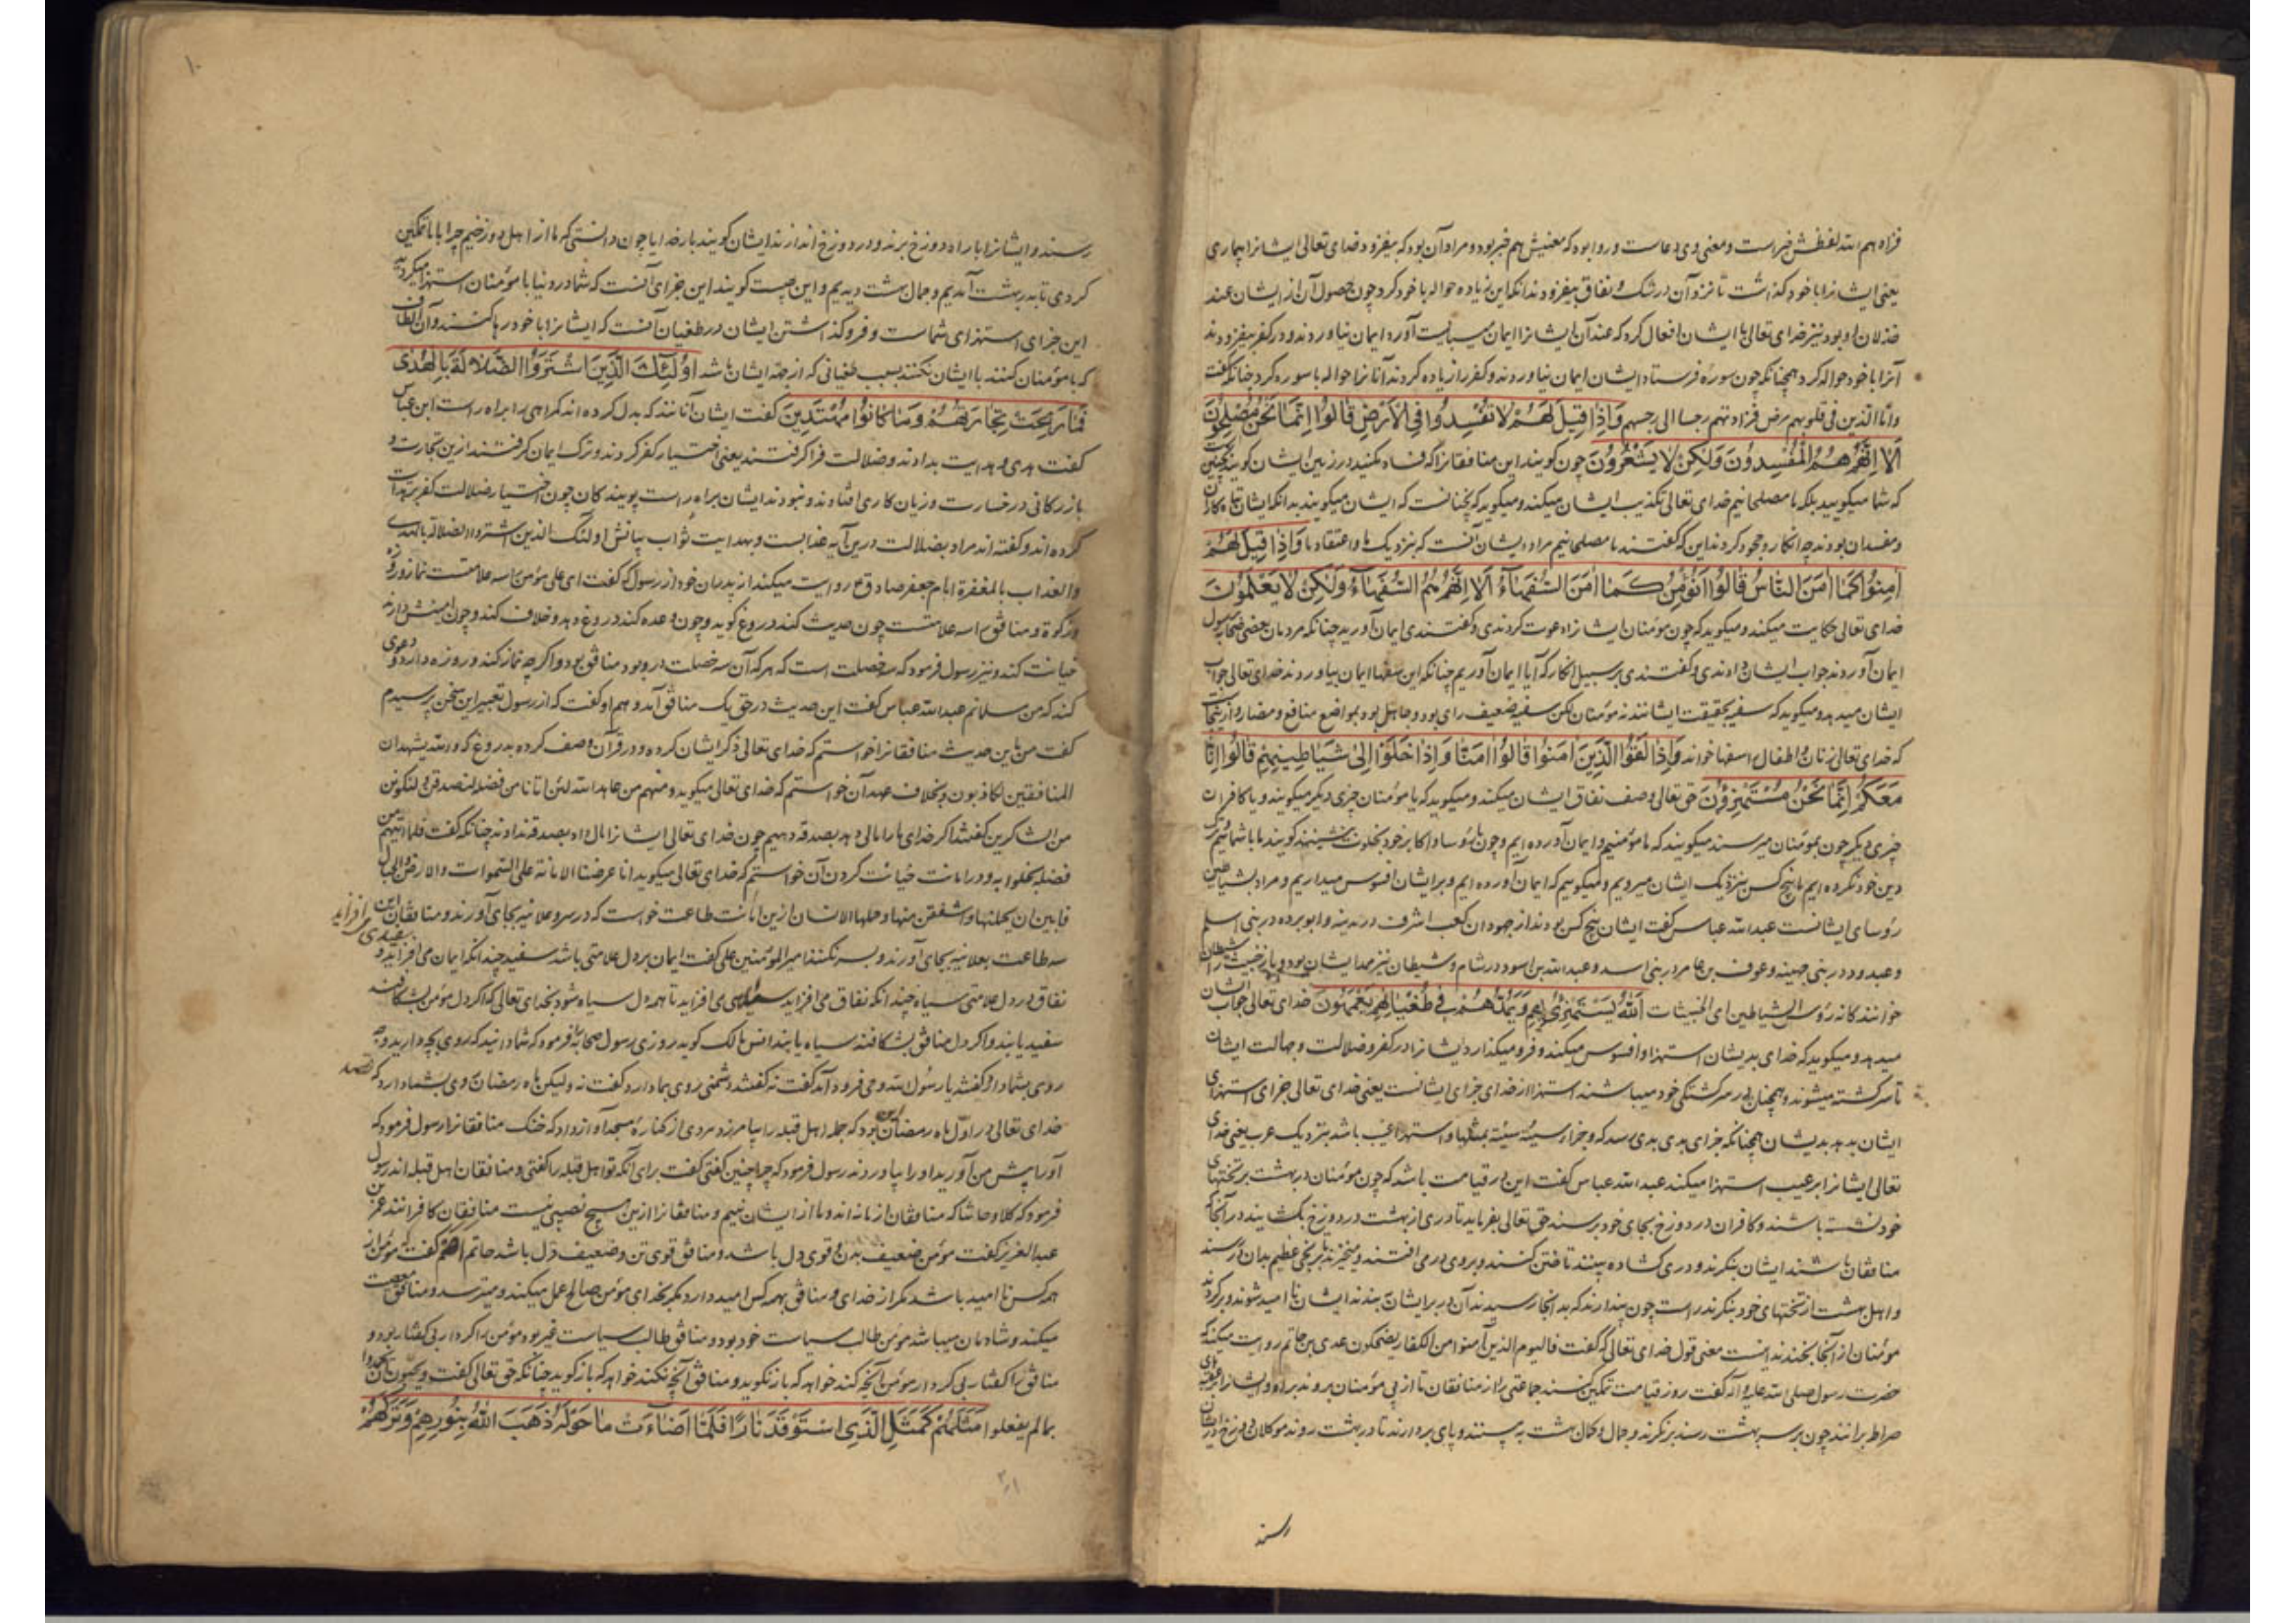 فزاد هم الله لفظش خبر است و معنی وی دعاست و روا بود که معنیش هم خبر بود و مراد آن بود که بیفزود خدای تعالی ایشانرا بیماری
یعنی ایشانرا با خود گذاشت تا نزد آن در شک و نفاق بیفزودند آنکه این زیاده حواله با خود کرد چون حصول آن از ایشان عند
خذلان او بود نیز خدای تعالی با ایشان افعال کرد که عند آن ایشانرا ایمان میبایست آورد ایمان نیاوردند و در کفر بیفزودند
آنرا با خود حواله کرد همچنانکه چون سوره فرستاد ایشان ایمان نیاوردند و کفر را زیاده کردند آنانرا حواله با سوره کرد چنانکه گفت
واما الذین فی قلوبهم مرض فزادتهم رجسا الی رجسهم وَاِذَا قِیلَ لَهُمْ لَا تُفْسِدُوا فِی الْاَرْضِ قَالُوا اِنَّمَا نَحْنُ مُصْلِحُونَ
اَلَا اِنَّهُمْ هُمُ الْمُفْسِدُونَ وَلٰکِنْ لَا یَشْعُرُونَ چون گویند این منافقانرا که فساد مکنید در زمین ایشان گویند
که شما میگویید بلکه ما مصلحانیم خدای تعالی تکذیب ایشان میکند و میگوید که نچنانست که ایشان میگویند بدانکه ایشان تباه کاران
و مفسدان بودند چه انکار و جحود کردند این که گفتند ما مصلحانیم مراد ایشان آنست که بنزدیک ما و اعتقاد ما وَاِذَا قِیلَ لَهُمْ
اٰمِنُوا کَمَا اٰمَنَ النَّاسُ قَالُوا اَنُؤْمِنُ کَمَا اٰمَنَ السُّفَهَاءُ اَلَا اِنَّهُمْ هُمُ السُّفَهَاءُ وَلٰکِنْ لَا یَعْلَمُونَ
خدای تعالی حکایت میکند و میگوید که چون مؤمنان ایشانرا دعوت کردندی و گفتندی ایمان آورید چنانکه مردمان یعنی صحابه رسول
ایمان آوردند جواب ایشان دادندی و گفتندی بر سبیل انکار که آیا ایمان آوریم چنانکه این سفها ایمان بیاوردند خدای تعالی جواب
ایشان میدهد و میگوید که سفیه بحقیقت ایشانند نه مؤمنان لکن سفیه ضعیف رای بود و جاهل بود بمواضع منافع و مضار و از اینجاست
که خدای تعالی زنان و اطفال را سفها خواند وَاِذَا لَقُوا الَّذِینَ اٰمَنُوا قَالُوا اٰمَنَّا وَاِذَا خَلَوْا اِلٰی شَیَاطِینِهِمْ قَالُوا اِنَّا
مَعَکُمْ اِنَّمَا نَحْنُ مُسْتَهْزِؤُنَ حق تعالی وصف نفاق ایشان میکند و میگوید که با مؤمنان چیزی دیگر میگویند و با کافران
چیزی دیگر چون بمؤمنان میرسند میگویند که ما مؤمنیم و ایمان آورده ایم و چون با رؤسا و اکابر خود بخلوت بنشینند گویند ما با شماییم
دین خود نکرده ایم ما پنج کس بنزدیک ایشان میرویم و میگوییم که ایمان آورده ایم و بر ایشان افسوس میداریم و مراد بشیاطین
رؤسای ایشانست عبدالله عباس گفت ایشان پنج کس بودند از جهودان کعب اشرف در مدینه و ابو برده در بنی اسلم
و عبدود در بنی جهینه و عوف بن عامر در بنی اسد و عبدالله بن اسود در شام و شیطان نیز
خوانند کانه رؤس الشیاطین ای الخبیثات اَللّٰهُ یَسْتَهْزِئُ بِهِمْ وَیَمُدُّهُمْ فِی طُغْیَانِهِمْ یَعْمَهُونَ خدای تعالی جواب ایشان
میدهد و میگوید که خدای بدیشان استهزا و افسوس میکند و فرو میگذارد ایشانرا در کفر و ضلالت و جهالت ایشان
تا سرگشته میشوند و همچنان در سرگشتگی خود میباشند استهزا از خدای جزای ایشانست یعنی خدای تعالی جزای استهزای
ایشان بدهد بدیشان همچنانکه جزای بدی بدی رسد که و جزاء سیئة سیئة بمثلها و استهزا عیب باشد بنزدیک عرب یعنی خدای
تعالی ایشانرا بر عیب استهزا میکند عبدالله عباس گفت این در قیامت باشد که چون مؤمنان در بهشت بر تختهای
خود نشسته باشند و کافران در دوزخ بجای خود برسند حق تعالی بفرماید تا دری از بهشت در دوزخ بگشایند در آنجا که
منافقان باشند ایشان بنگرند و دری گشاده بینند تاختن کنند و بر روی در می افتند و میخیزند تا برنجی عظیم بدان در رسند
و اهل بهشت از تختهای خود بنگرند راست چون پندارند که بدانجا رسیدند آن در بر ایشان ببندند ایشان ناامید شوند و برگردند
مؤمنان از آنجا بخندند اینست معنی قول خدای تعالی که گفت فالیوم الذین آمنوا من الکفار یضحکون عدی بن حاتم روایت میکند که
حضرت رسول صلی الله علیه و آله گفت روز قیامت تمکین کنند جماعتی را از منافقان تا از پی مؤمنان بروند براه و ایشانرا
صراط برانند چون بر سر بهشت رسند بنگرند و جمال و کمال بهشت ببینند و پای بردارند تا در بهشت روند موکلان دوزخ در ایشان
رسند
رسند و ایشانرا با راه دوزخ برند و در دوزخ اندازند ایشان گویند بار خدایا چون دانستی که ما از اهل دوزخیم چرا ما را تمکین
کردی تا بدر بهشت آمدیم و جمال بهشت دیدیم و این چیست گویند این جزای آنست که شما در دنیا با مؤمنان استهزا میکردید
این جزای استهزای شماست و فرو گذاشتن ایشان در طغیان آنست که ایشانرا با خود رها کنند و آن الطاف
که با مؤمنان کنند با ایشان نکنند بسبب طغیانی که از جهة ایشان باشد اُولٰئِکَ الَّذِینَ اشْتَرَوُا الضَّلَالَةَ بِالْهُدٰی
فَمَا رَبِحَتْ تِجَارَتُهُمْ وَمَا کَانُوا مُهْتَدِینَ گفت ایشان آنانند که بدل کرده اند گمراهی را براه راست ابن عباس
گفت هدی و هدایت بدادند و ضلالت فرا گرفتند یعنی اختیار کفر کردند و ترک ایمان گرفتند ازین تجارت و
بازرگانی در خسارت و زیان کاری افتادند و نبودند ایشان براه راست پویندگان چون اختیار ضلالت کفر بر هدایت
کرده اند و گفته اند مراد بضلالت درین آیه عذابست و بهدایت ثواب بیانش اولئک الذین اشتروا الضلالة بالهدی
والعذاب بالمغفرة امام جعفر صادق ع روایت میکند از پدران خود از رسول که گفت ای علی مؤمن را سه علامتست نماز و روزه
و زکوة و منافق را سه علامتست چون حدیث کند دروغ گوید و چون وعده کند دروغ دهد و خلاف کند و چون امینش دارند
خیانت کند و نیز رسول فرمود که سه خصلت است که هر که آن سه خصلت در و بود منافق بود و اگر چه نماز کند و روزه دارد و دعوی
کند که من مسلمانم عبدالله عباس گفت این حدیث در حق یک منافق آمد و هم او گفت که از رسول تعبیر این سخن پرسیدم
گفت من باین حدیث منافقانرا خواستم که خدای تعالی ذکر ایشان کرده و در قرآن وصف کرده بدروغ که والله یشهد ان
المنافقین لکاذبون و بخلاف عهد آن خواستم که خدای تعالی میگوید و منهم من عاهد الله لئن اتانا من فضله لنصدقن و لنکونن
من الشاکرین گفتند اگر خدای ما را مالی دهد بصدقه دهیم چون خدای تعالی ایشانرا مال داد بصدقه ندادند چنانکه گفت فلما اتیهم من
فضله بخلوا به و در امانت خیانت کردن آن خواستم که خدای تعالی میگوید انا عرضنا الامانة علی السموات والارض والجبال
فابین ان یحملنها واشفقن منها وحملها الانسان ازین امانت طاعت خواست که در سر و علانیه بجای آورند و منافقان این
سه طاعت بعلانیه بجای آورند و بسر نکنند امیرالمؤمنین علی گفت ایمان بر دل علامتی باشد سفید چندانکه ایمان می افزاید
سفیدی می افزاید
نفاق در دل علامتی سیاه چندانکه نفاق می افزاید سیاهی می افزاید تا همه دل سیاه شود بخدای تعالی که اگر دل مؤمن بشکافند
سفید یابند و اگر دل منافق بشکافند سیاه یابند انس مالک گوید روزی رسول صحابه را فرمود که شما دانید که روی بچه دارید و چه
روی بشما دارد گفتند یا رسول الله وحی فرود آمد گفت نه گفتند دشمنی روی بما دارد گفت نه ولیکن ماه رمضان روی بشما دارد که
خدای تعالی در اول ماه رمضان بود که جمله اهل قبله را بیامرزد مردی از کناره مسجد آواز داد که خنک منافقانرا رسول فرمود که
او را پیش من آورید او را بیاوردند رسول فرمود که چرا چنین گفتی گفت برای آنکه تو اهل قبله را گفتی و منافقان اهل قبله اند رسول
فرمود که کلا و حاشا که منافقان از ما نه اند و ما از ایشان نییم و منافقانرا ازین هیچ نصیبی نیست منافقان کافرانند عمر بن
عبدالعزیز گفت مؤمن ضعیف بدن و قوی دل باشد و منافق قوی تن و ضعیف دل باشد حاتم اصم گفت که مؤمن از
همه کس ناامید باشد مگر از خدای و منافق بهمه کس امید دارد مگر بخدای مؤمن صالح عمل میکند و میترسد و منافق معصیت
میکند و شادمان میباشد مؤمن طالب سیاست خود بود و منافق طالب سیاست غیر بود مؤمن را کردار بی گفتار بود و
منافق را گفتار بی کردار مؤمن آنچه کند خواهد که باز نگوید و منافق آنچه نکند خواهد که باز گوید چنانکه حق تعالی گفت و یحبون ان یحمدوا
بما لم یفعلوا مَثَلُهُمْ کَمَثَلِ الَّذِی اسْتَوْقَدَ نَارًا فَلَمَّا اَضَاءَتْ مَا حَوْلَهُ ذَهَبَ اللّٰهُ بِنُورِهِمْ وَتَرَکَهُمْ